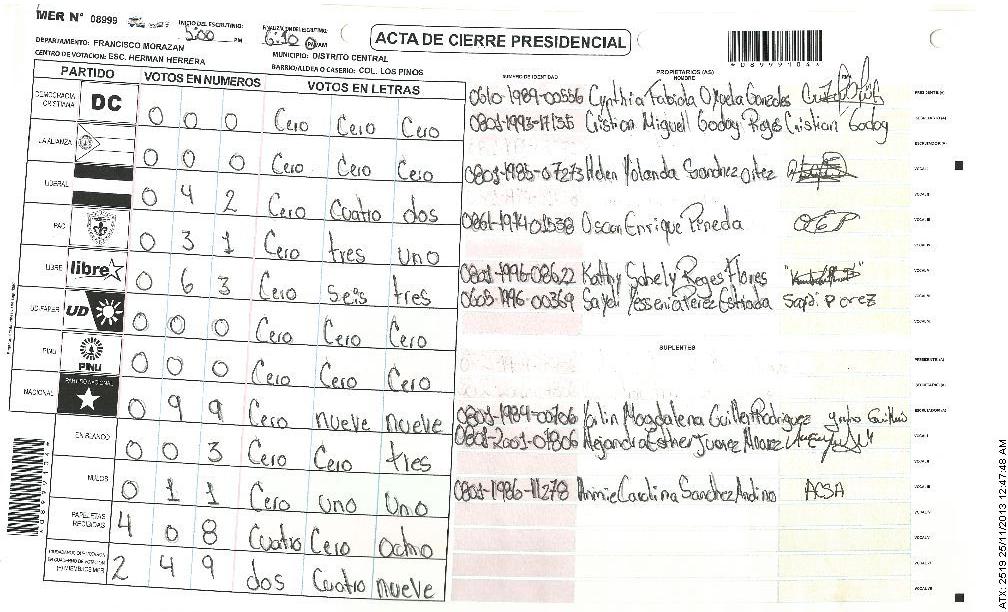 MER N° 08999
INICIO DEL ESCRUTINIO: 5:00 PM
FINALIZACION DEL ESCRUTINIO: 6:10 PM/AM
ACTA DE CIERRE PRESIDENCIAL
*08999104*
DEPARTAMENTO: FRANCISCO MORAZAN
MUNICIPIO: DISTRITO CENTRAL
CENTRO DE VOTACION: ESC. HERMAN HERRERA
BARRIO/ALDEA O CASERIO: COL. LOS PINOS
PARTIDO VOTOS EN NUMEROS VOTOS EN LETRAS
DEMOCRACIA CRISTIANA DC 0 0 0 Cero Cero Cero
LA ALIANZA 0 0 0 Cero Cero Cero
LIBERAL 0 4 2 Cero Cuatro dos
PAC 0 3 1 Cero tres uno
LIBRE libre 0 6 3 Cero seis tres
UD-FAPER UD 0 0 0 Cero Cero Cero
PINU PINU 0 0 0 Cero Cero Cero
NACIONAL PARTIDO NACIONAL 0 9 9 Cero nueve nueve
EN BLANCO 0 0 3 Cero Cero tres
NULOS 0 1 1 Cero uno uno
PAPELETAS RECIBIDAS 4 0 8 Cuatro Cero ocho
2 4 9 dos Cuatro nueve
NUMERO DE IDENTIDAD PROPIETARIOS (AS) NOMBRE FIRMA
0610-1989-00556 Cynthia Fabiola Gonzales PRESIDENTE (A)
0801-1993-17135 Cristian Miguell Godoy Reyes Cristian Godoy SECRETARIO (A)
ESCRUTADOR (A)
0801-1985-07273 Helen Yolanda Sanchez Ortez VOCAL I
VOCAL II
0801-1974-01538 Oscar Enrique Pineda OEP VOCAL III
VOCAL IV
0801-1996-08622 Kathy Sobely Reyes Flores VOCAL V
0605-1996-00369 Saydi Yessenia Perez Estrada perez VOCAL VI
SUPLENTES
PRESIDENTE (A)
SECRETARIO (A)
0801-1984-00706 Karlin Magdalena Guillen Rodriguez ESCRUTADOR (A)
0801-2001-01806 Alejandra Esther Juarez Alvarez VOCAL I
VOCAL II
0801-1986-11278 Annie Carolina Sanchez Andino ACSA VOCAL III
VOCAL IV
VOCAL V
VOCAL VI
VOCAL VII
*08999104*
ATX: 2519 25/11/2013 12:47:48 AM